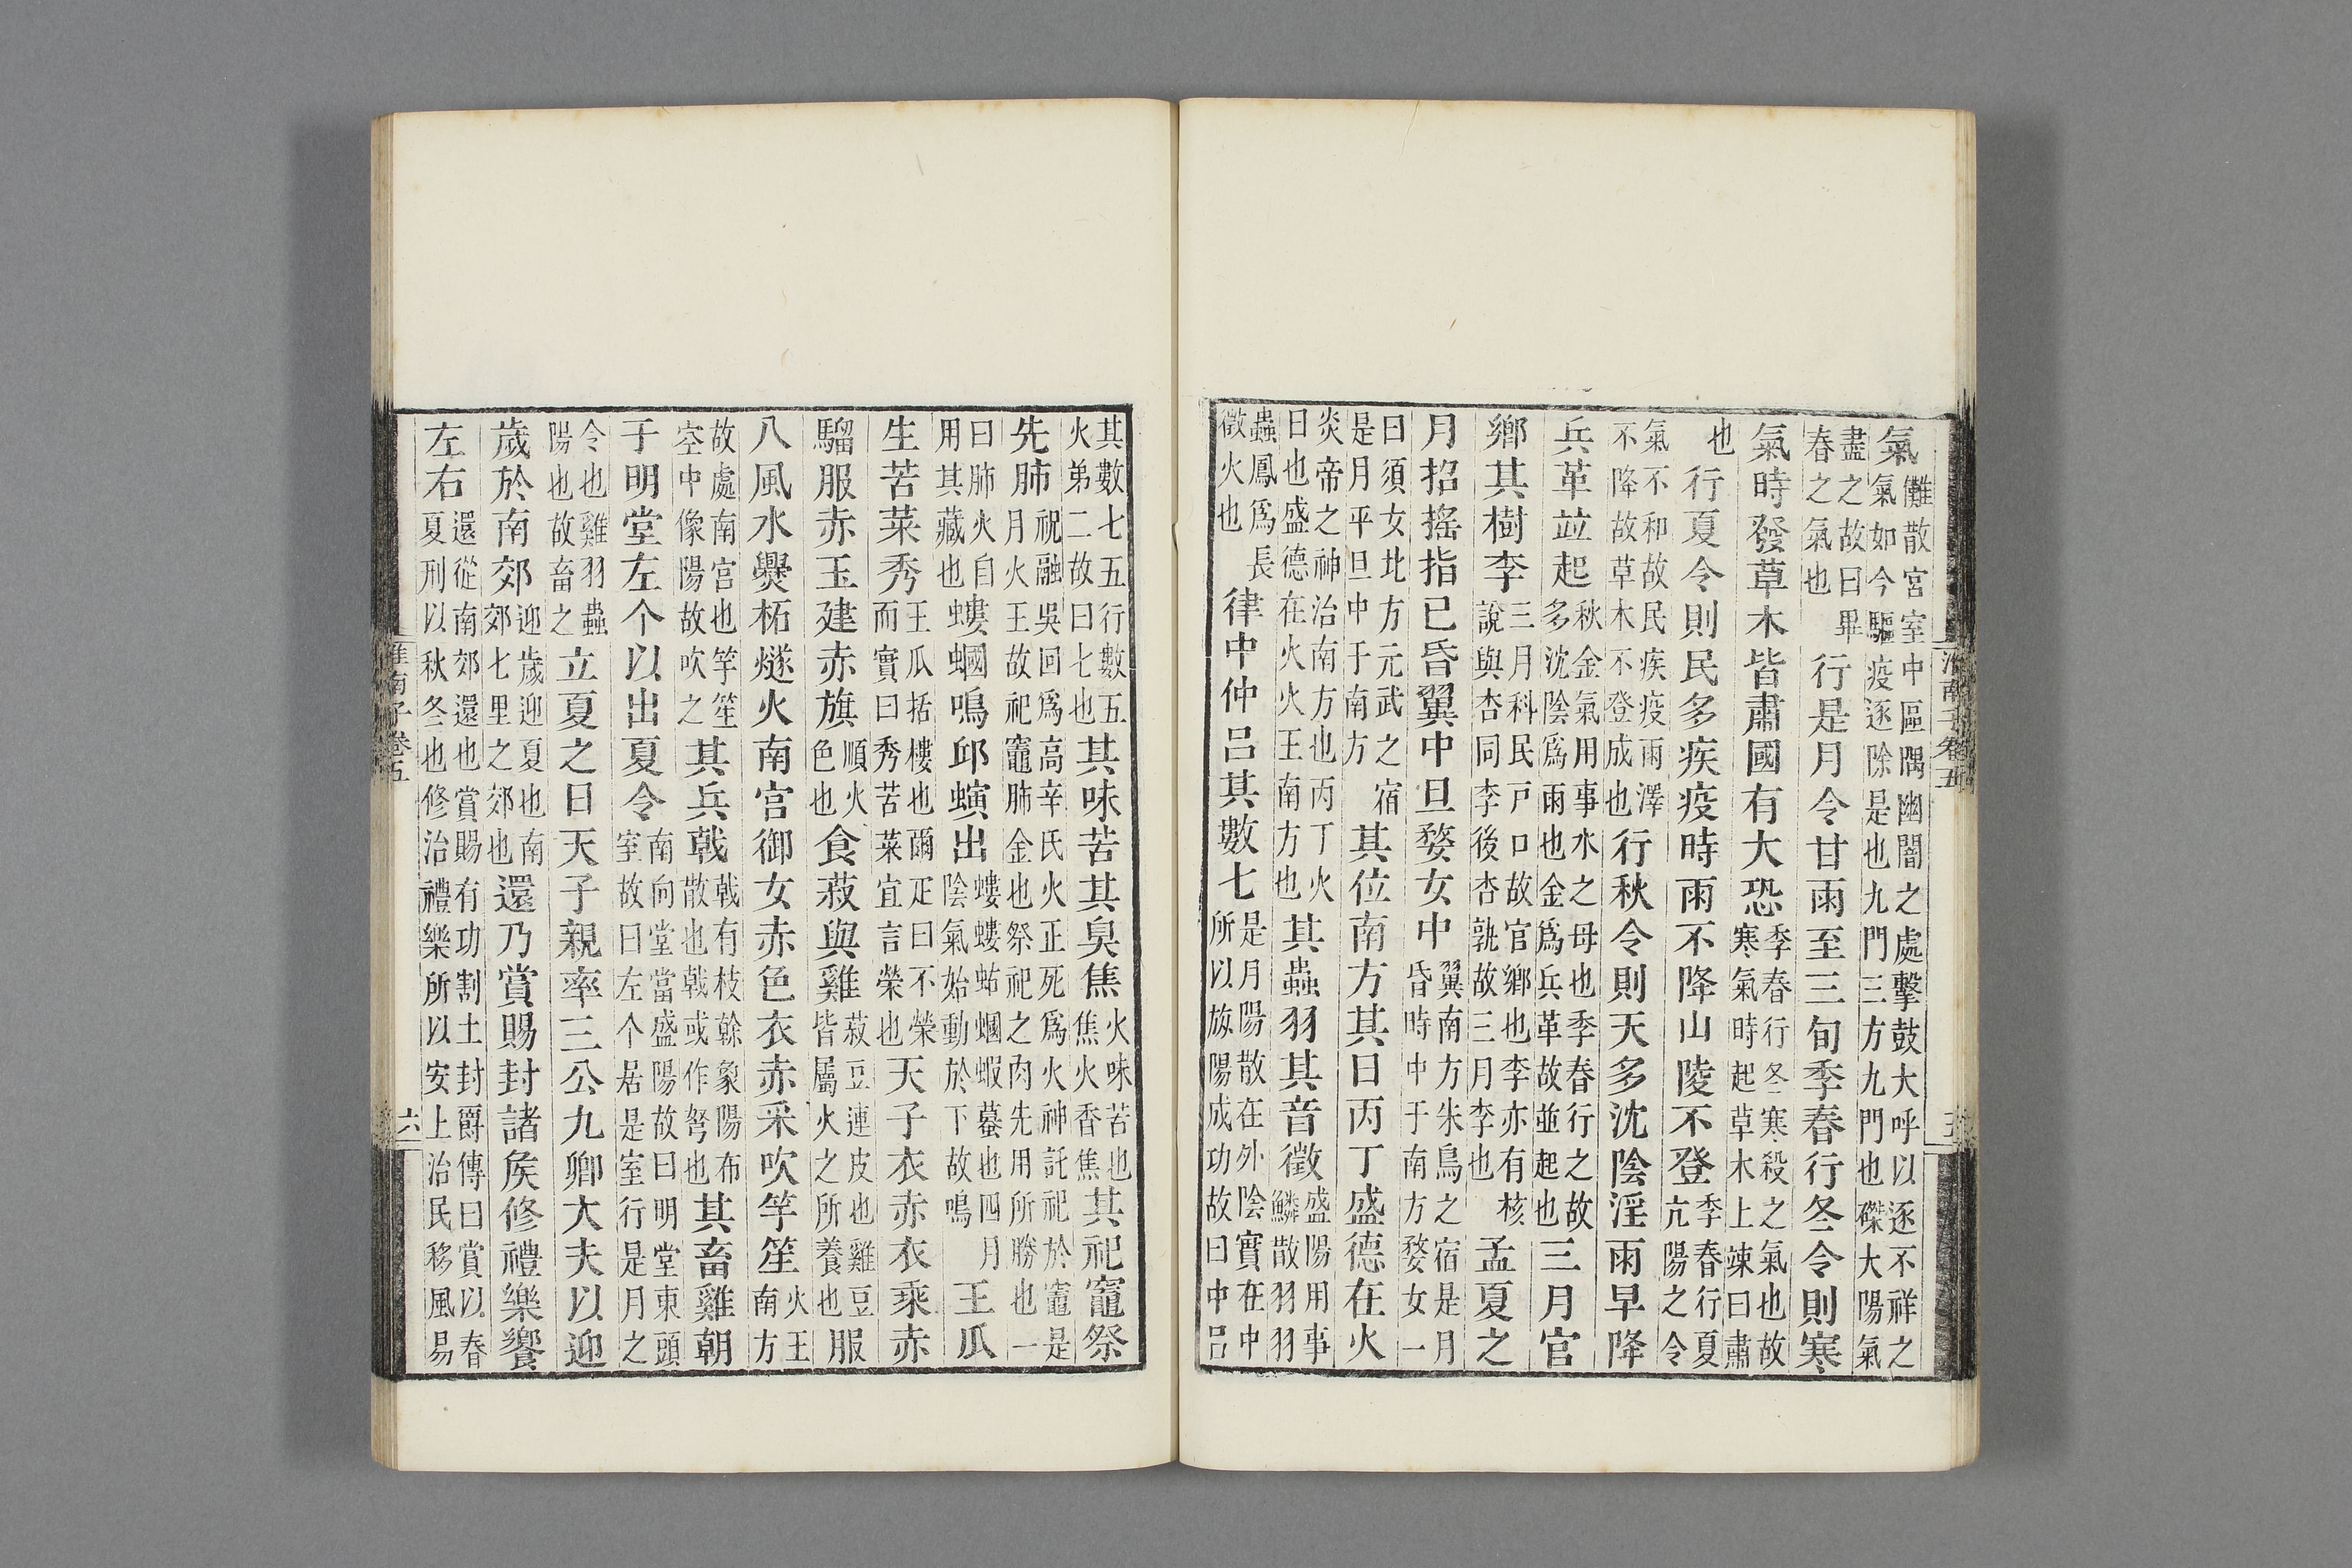 淮南子卷五
五
氣儺散宮室中區隅幽闇之處擊鼓大呼以逐不祥之氣如今驅疫逐除是也九門三方九門也磔大陽氣
盡之故曰畢春之氣也行是月令甘雨至三旬季春行冬令則寒
氣時發草木皆肅國有大恐季春行冬寒殺之氣也故寒氣時起草木上竦曰肅
也行夏令則民多疾疫時雨不降山陵不登季春行夏亢陽之令
氣不和故民疾疫雨澤不降故草木不登成也行秋令則天多沈陰淫雨早降
兵革竝起秋金氣用事水之母也季春行之故多沈陰爲雨也金爲兵革故並起也三月官
鄉其樹李三月科民戸口故官鄉也李亦有核說與杏同李後杏孰故三月李也孟夏之
月招搖指巳昏翼中旦婺女中翼南方朱鳥之宿是月昏時中于南方婺女一
曰須女北方元武之宿是月平旦中于南方其位南方其日丙丁盛德在火
炎帝之神治南方也丙丁火日也盛德在火火王南方也其蟲羽其音徵盛陽用事鱗散羽羽
蟲鳳爲長徵火也律中仲呂其數七是月陽散在外陰實在中所以旅陽成功故曰中呂
其數七五行數五火弟二故曰七也其味苦其臭焦火味苦也焦火香焦其祀竈祭
先肺祝融吳回爲高辛氏火正死爲火神託祀於竈是月火王故祀竈肺金也祭祀之肉先用所勝也一
曰肺火自用其藏也螻蟈鳴邱螾出螻螻蛄蟈蝦蟇也四月陰氣始動於下故鳴王瓜
生苦菜秀王瓜括樓也爾疋曰不榮而實曰秀苦菜宜言榮也天子衣赤衣乘赤
騮服赤玉建赤旗順火色也食菽與雞菽豆連皮也雞豆皆屬火之所養也服
八風水爨柘燧火南宮御女赤色衣赤采吹竽笙火王南方
故處南宮也竽笙空中像陽故吹之其兵戟戟有枝榦象陽布散也戟或作弩也其畜雞朝
于明堂左个以出夏令南向堂當盛陽故曰明堂東頭室故曰左个居是室行是月之
令也雞羽蟲陽也故畜之立夏之日天子親率三公九卿大夫以迎
歲於南郊迎歲迎夏也南郊七里之郊也還乃賞賜封諸矦修禮樂饗
左右還從南郊還也賞賜有功割土封爵傳曰賞以春夏刑以秋冬也修治禮樂所以安上治民移風易
淮南子卷五
六